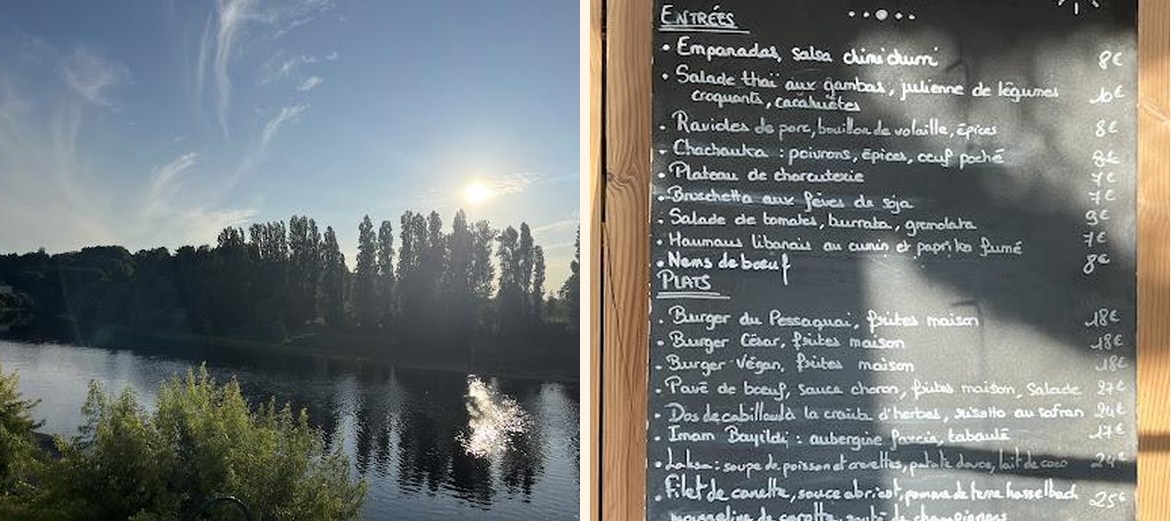 ENTRÉES
• Empanadas, salsa chimichurri 8€
• Salade thaï aux gambas, julienne de légumes 10€
croquants, cacahuètes
• Ravioles de porc, bouillon de volaille, épices 8€
• Chachauka : poivrons, épices, œuf poché 8€
• Plateau de charcuterie 7€
• Bruschetta aux fèves de soja 7€
• Salade de tomates, burrata, gremolata 9€
• Houmous libanais au cumin et paprika fumé 7€
• Nems de bœuf 8€
PLATS
• Burger du Pessaquai, frites maison 18€
• Burger César, frites maison 18€
• Burger Végan, frites maison 18€
• Pavé de bœuf, sauce choron, frites maison, Salade 27€
• Dos de cabillaud à la croûte d'herbes, risotto au safran 24€
• Imam Bayildi : aubergine farcie, taboulé 17€
• Laksa : soupe de poisson et crevettes, patate douce, lait de coco 24€
• Filet de canette, sauce abricot, pomme de terre hasselback 25€
mousseline de carotte, sauté de champignons